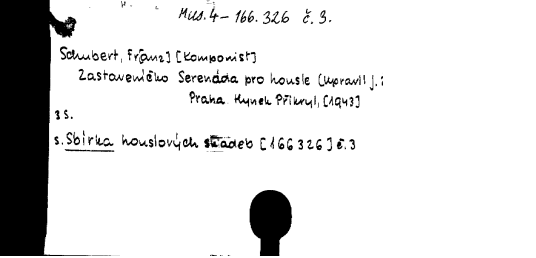 Mus. 4 - 166.326 č. 3.
Schubert, Fr[anz] [Komponist]
Zastaveníčko Serenáda pro housle [upravil] j.:
Praha. Hynek Přikryl, [1943]
3 S.
s. Sbírka houslových skladeb [166326] č. 3